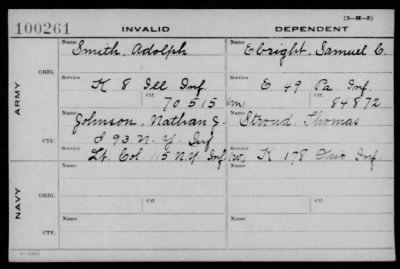 (3-H-5)
100261 INVALID DEPENDENT
Name Smith, Adolph Name Ebright, Samuel C.
ORIG. Service K 8 Ill Inf. Service E 49 Pa Inf.
Ctf. 70515 (m) Ctf. 84872
ARMY
Name Johnson, Nathan J. Name Stroud, Thomas
CTF. Service 93 N.Y. Inf
Lt. Col 115 N.Y. Inf Service K 178 Ohio Inf.
NAVY
ORIG. Name Name
CTF. Name Name